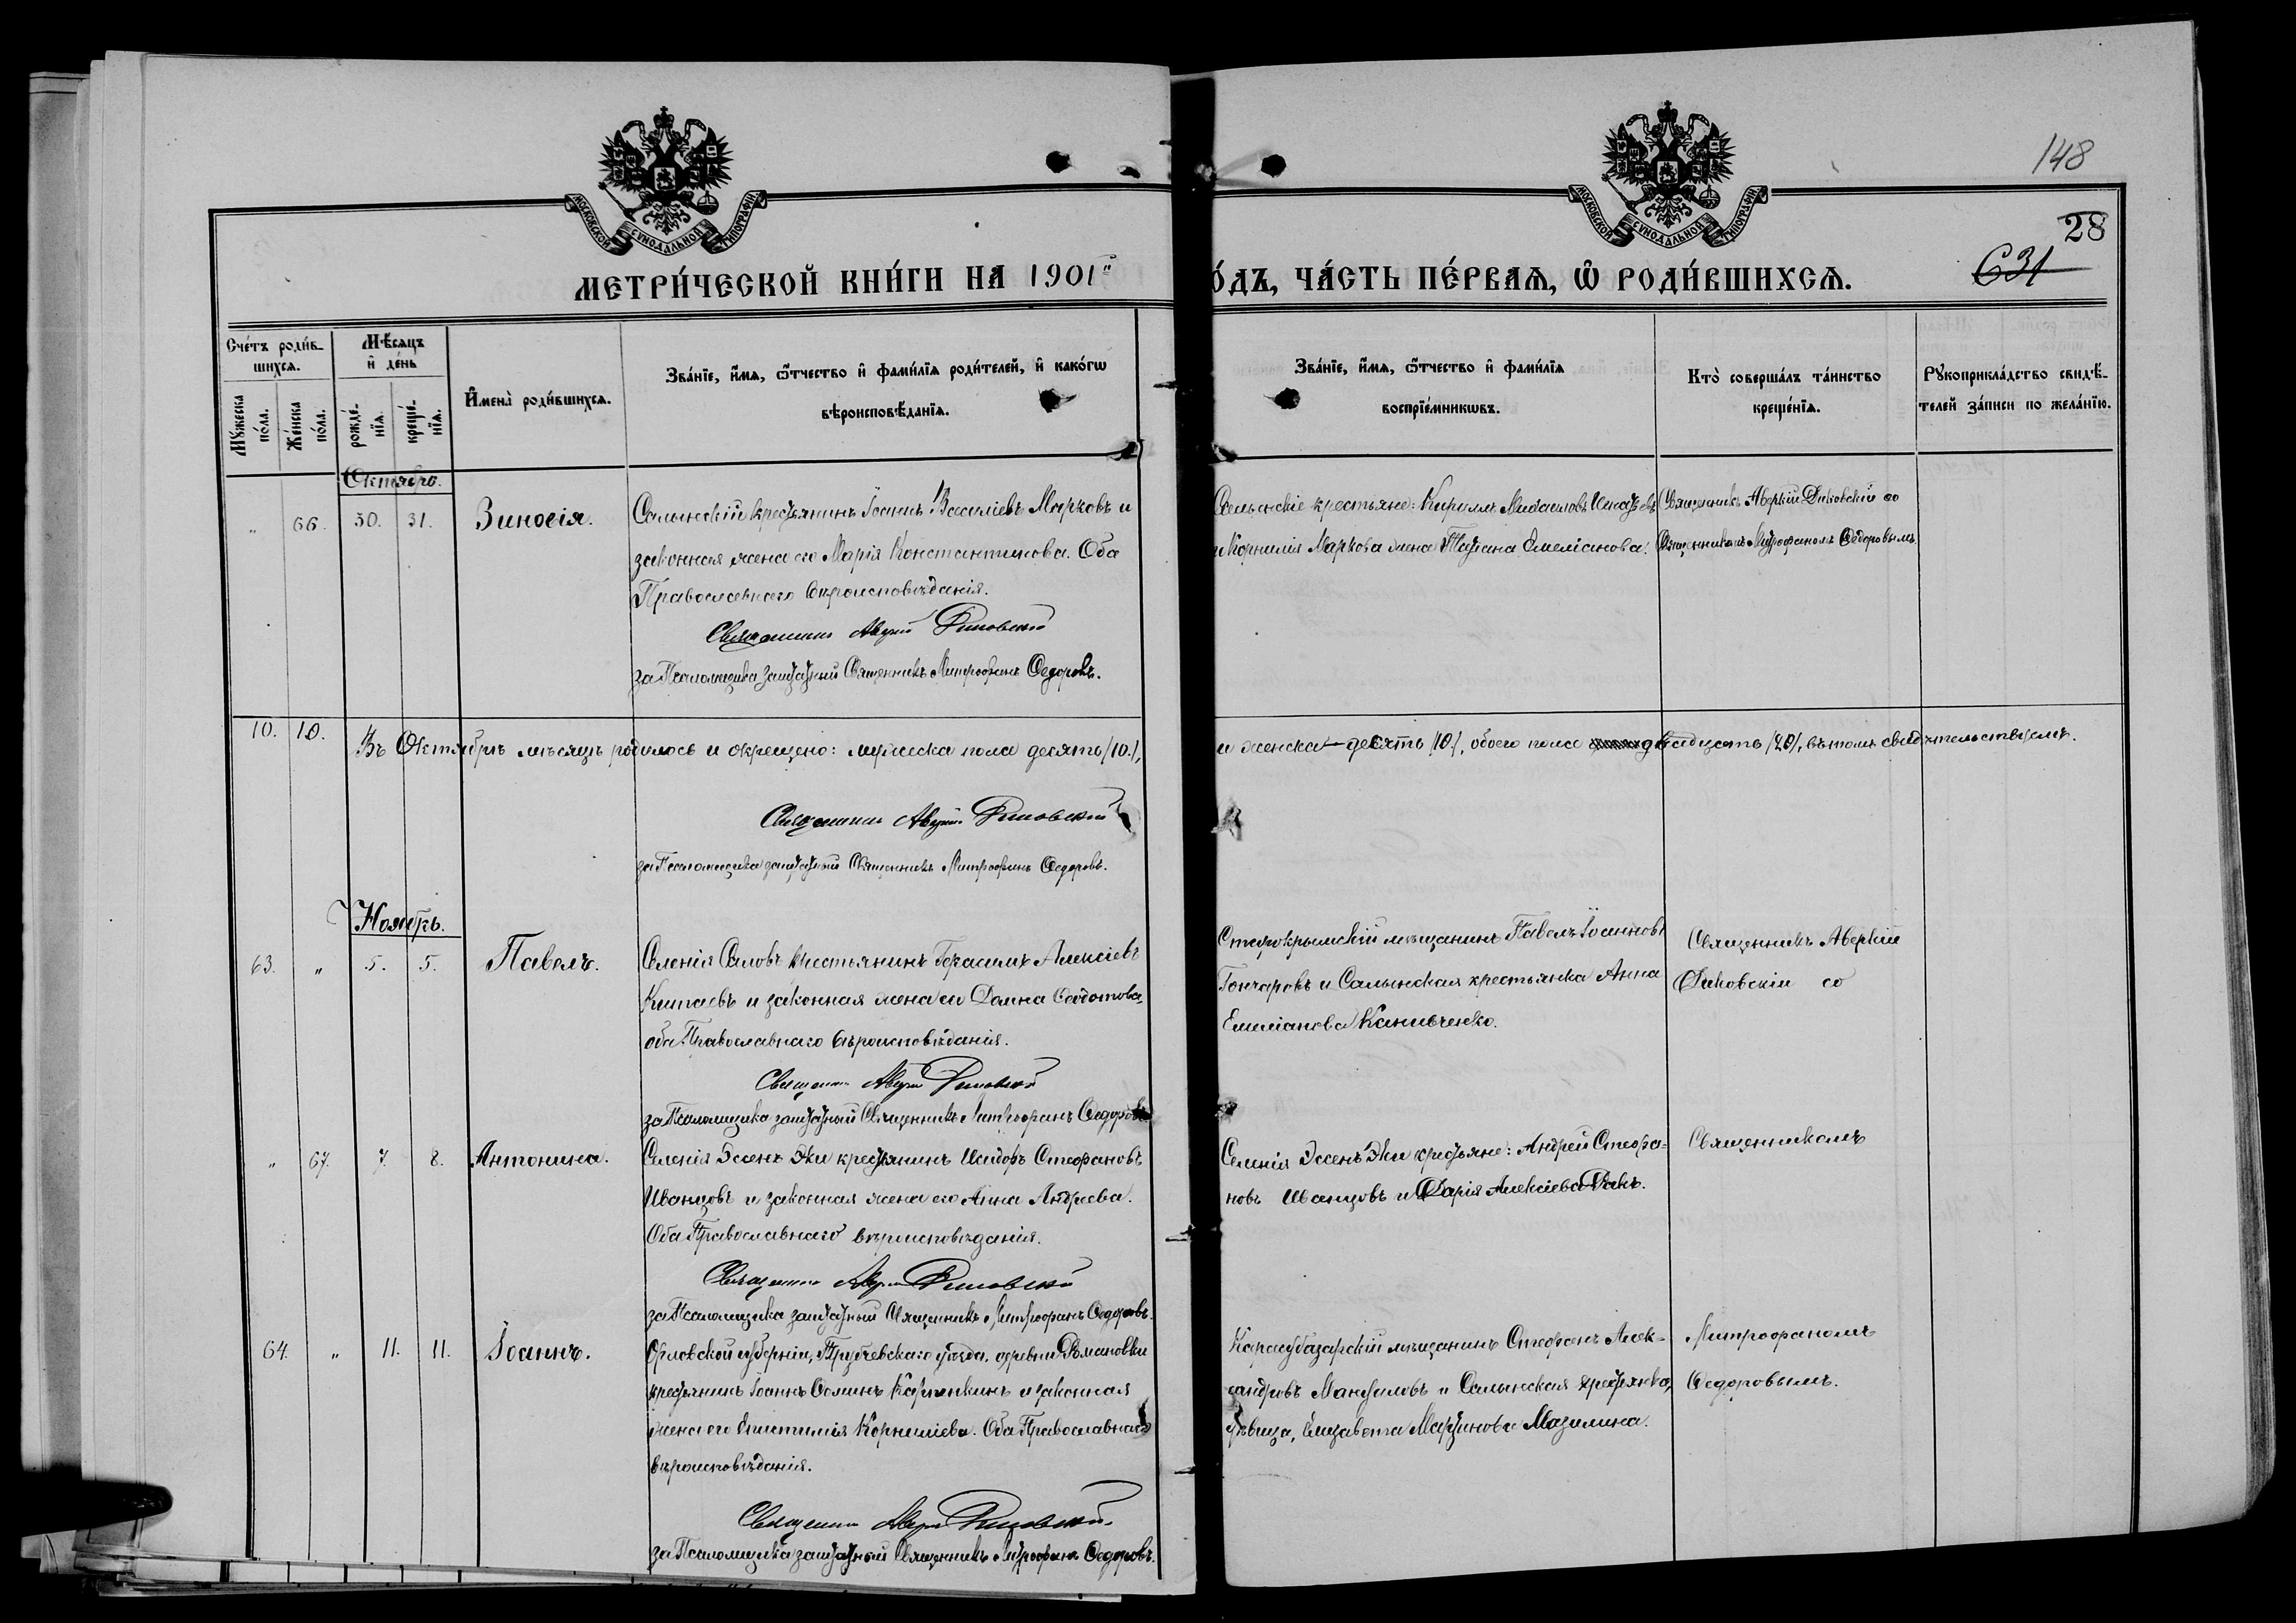 148
28
631
МОСКОВСКОЙ СѴНОДАЛЬНОЙ ТИПОГРАФІИ
МОСКОВСКОЙ СѴНОДАЛЬНОЙ ТИПОГРАФІИ
МЕТРИ́ЧЕСКОЙ КНИ́ГИ НА 1901й
О́ДЪ, ЧА́СТЬ ПЕ́РВАЯ, Ѡ҆ РОДИ́ВШИХСЯ.
Сче́тъ роди́в-
шихся.
Мꙋ́жеска по́ла.
Же́нска по́ла.
Мѣ́сяцъ
и҆ де́нь
рожде́-
нїя.
креще́-
нїя.
И҆мена̀ роди́вшихся.
Зва́нїе, и҆́мя, ѻ҆́тчество и҆ фами́лїя роди́телей, и҆ како́гѡ
вѣроисповѣ́данїя.
Зва́нїе, и҆́мя, ѻ҆́тчество и҆ фами́лїя
воспрїе́мникѡвъ.
Кто̀ соверша́лъ та́инство
креще́нїя.
Рꙋкоприкла́дство свидѣ́-
телей за́писи по жела́нїю.
Октябрь.
„ 66. 30. 31. Зиновія.
Салынскій крестьянинъ Іоаннъ Василіевъ Марковъ и
законная жена его Марія Константинова. Оба
Православнаго вѣроисповѣданія.
Священникъ Аверкій Диковскій
за Псаломщика заштатный Священникъ Митрофанъ Ѳедоровъ.
Салынскіе крестьяне: Кириллъ Михаиловъ
и Корнилія Маркова жена Татіана Емеліанова.
Священникъ Аверкій Диковскій со
Священникомъ Митрофаномъ Ѳедоровымъ
10. 10. Въ Октябрѣ мѣсяцѣ родилось и окрещено: мужеска пола десять /10./,
и женска — десять /10./, обоего пола двадцать /20/, въ томъ свидѣтельствуемъ.
Священникъ Аверкій Диковскій
за Псаломщика заштатный Священникъ Митрофанъ Ѳедоровъ.
Ноябрь.
63. „ 5. 5. Павелъ.
Селенія Саловъ крестьянинъ Герасимъ Алексіевъ
Китаевъ и законная жена его Домна Ѳеодотова,
оба Православнаго вѣроисповѣданія.
Священникъ Аверкій Диковскій
за Псаломщика заштатный Священникъ Митрофанъ Ѳедоровъ
Старокрымскій мѣщанинъ Павелъ Іоанновъ
Гончаровъ и Салынская крестьянка Анна
Емеліанова Канивченко.
Священникъ Аверкій
Диковскій со
„ 67. 7. 8. Антонина.
Селенія Эссенъ Эки крестьянинъ Исидоръ Стефановъ
Иванцовъ и законная жена его Анна Андреева.
Оба Православнаго вѣроисповѣданія.
Священникъ Аверкій Диковскій
за Псаломщика заштатный Священникъ Митрофанъ Ѳедоровъ.
Селенія Эссенъ Эки крестьяне: Андрей Стефа-
новъ Иванцовъ и Дарія Алексіева Дакъ.
Священникомъ
64. „ 11. 11. Іоаннъ.
Орловской губерніи, Трубчевскаго уѣзда, деревни
крестьянинъ Іоаннъ Ѳоминъ Карпекинъ и законная
жена его Епистимія Корниліева. Оба Православнаго
вѣроисповѣданія.
Священникъ Аверкій Диковскій
за Псаломщика заштатный Священникъ Митрофанъ Ѳедоровъ.
Карасубазарскій мѣщанинъ Стефанъ Алек-
сандровъ Манѳиловъ и Салынская крестьянка,
дѣвица, Елизавета Мартинова Мазилина.
Митрофаномъ
Ѳедоровымъ.